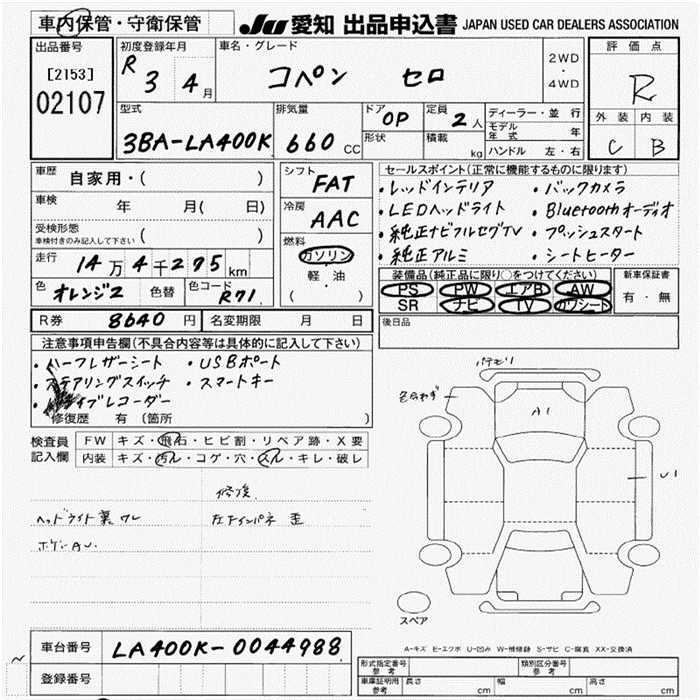 車内保管・守衛保管
JU 愛知 出品申込書 JAPAN USED CAR DEALERS ASSOCIATION
出品番号
[2153]
02107
初度登録年月
R 3 4月
車名・グレード
コペン セロ
2WD
・
4WD
評価点
R
外装 内装
C B
型式
3BA-LA400K
排気量
660 CC
ドア
OP
形状
定員
2人
積載 kg
ディーラー・並行
モデル年式 年
ハンドル 左・右
車歴
自家用・( )
車検 年 月( 日)
受検形態
車検付きのみ記入して下さい ( )
走行
14万4千275km
色
オレンジ2
色替
色コード
R71
シフト
FAT
冷房
AAC
燃料
ガソリン
軽・油
( )
セールスポイント(正常に機能するものに限ります)
・レッドインテリア ・バックカメラ
・LEDヘッドライト ・Bluetoothオーディオ
・純正ナビフルセグTV ・プッシュスタート
・純正アルミ ・シートヒーター
装備品(純正品に限り○をつけてください)
PS PW エアB AW
SR ナビ TV カワシート
新車保証書
有・無
後日品
R券 8640円
名変期限 月 日
注意事項申告欄(不具合内容等は具体的に記入して下さい)
・ハーフレザーシート ・USBポート
・ステアリングスイッチ ・スマートキー
・ドライブレコーダー
修復歴 有 (箇所 )
検査員記入欄
FW キズ・飛石・ヒビ割・リペア跡・X要
内装 キズ・汚レ・コゲ・穴・スレ・キレ・破レ
修復
ヘッドライト裏ワレ
左インパネ歪
ボデーAU
パテモリ
色合わず
A1
U1
スペア
A-キズ E-エクボ U-凹み W-補修跡 S-サビ C-腐蝕 XX-交換済
車台番号 LA400K-0044988
登録番号
形式指定番号 参考
類別区分番号 参考
車庫証明用 参考
長さ cm 幅 cm 高さ cm